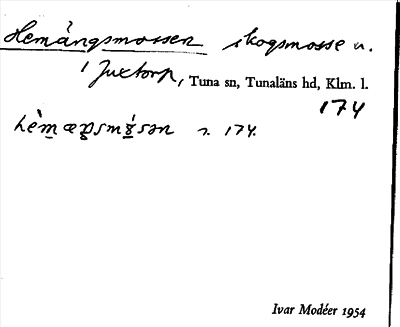 Hemängsmossen skogsmosse n.
i Juxtorp, Tuna sn, Tunaläns hd, Klm. l.
174
s. 174.
Ivar Modéer 1954